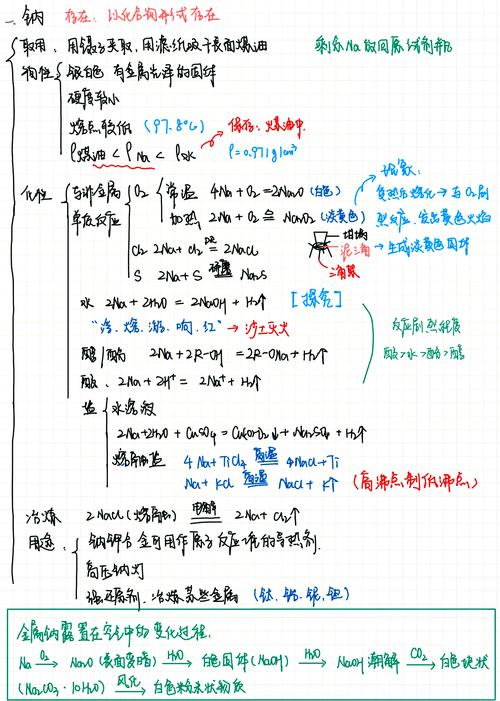 一. 钠 存在: 以化合物形式存在
取用: 用镊子夹取, 用滤纸吸干表面煤油 剩余Na放回原试剂瓶
物性 银白色 有金属光泽的固体
硬度较小
熔点较低 (97.8℃) 保存: 煤油中
ρ煤油 < ρNa < ρ水 ρ=0.971g/cm³
化性 与非金属单质反应 O₂ 常温 4Na + O₂ = 2Na₂O (白色) 现象:
加热 2Na + O₂ ≜ Na₂O₂ (淡黄色) 受热后熔化 → 与O₂剧烈反应, 发出黄色火焰
→ 生成淡黄色固体
坩埚
泥三角
三角架
Cl₂ 2Na + Cl₂ 点燃= 2NaCl
S 2Na + S 研磨= Na₂S
水 2Na + 2H₂O = 2NaOH + H₂↑ [探究]
"浮、熔、游、响、红" → 沙土灭火 反应剧烈程度
醇/酚 2Na + 2R-OH = 2R-ONa + H₂↑ 酸>水>酚>醇
酸 2Na + 2H⁺ = 2Na⁺ + H₂↑
盐 水溶液
2Na+2H₂O + CuSO₄ = Cu(OH)₂↓ + Na₂SO₄ + H₂↑
熔融盐 4Na + TiCl₄ 高温= 4NaCl + Ti
Na + KCl 高温= NaCl + K↑ (高沸点制低沸点)
冶炼 2NaCl (熔融) 电解= 2Na + Cl₂↑
用途: 钠钾合金可用作原子反应堆的导热剂.
高压钠灯
强还原剂. 冶炼某些金属 (钛、锆、铌、钽)
金属钠露置在空气中的变化过程.
Na O₂→ Na₂O (表面变暗) H₂O→ 白色固体(NaOH) H₂O→ NaOH潮解 CO₂→ 白色块状
(Na₂CO₃·10H₂O) 风化→ 白色粉末状物质